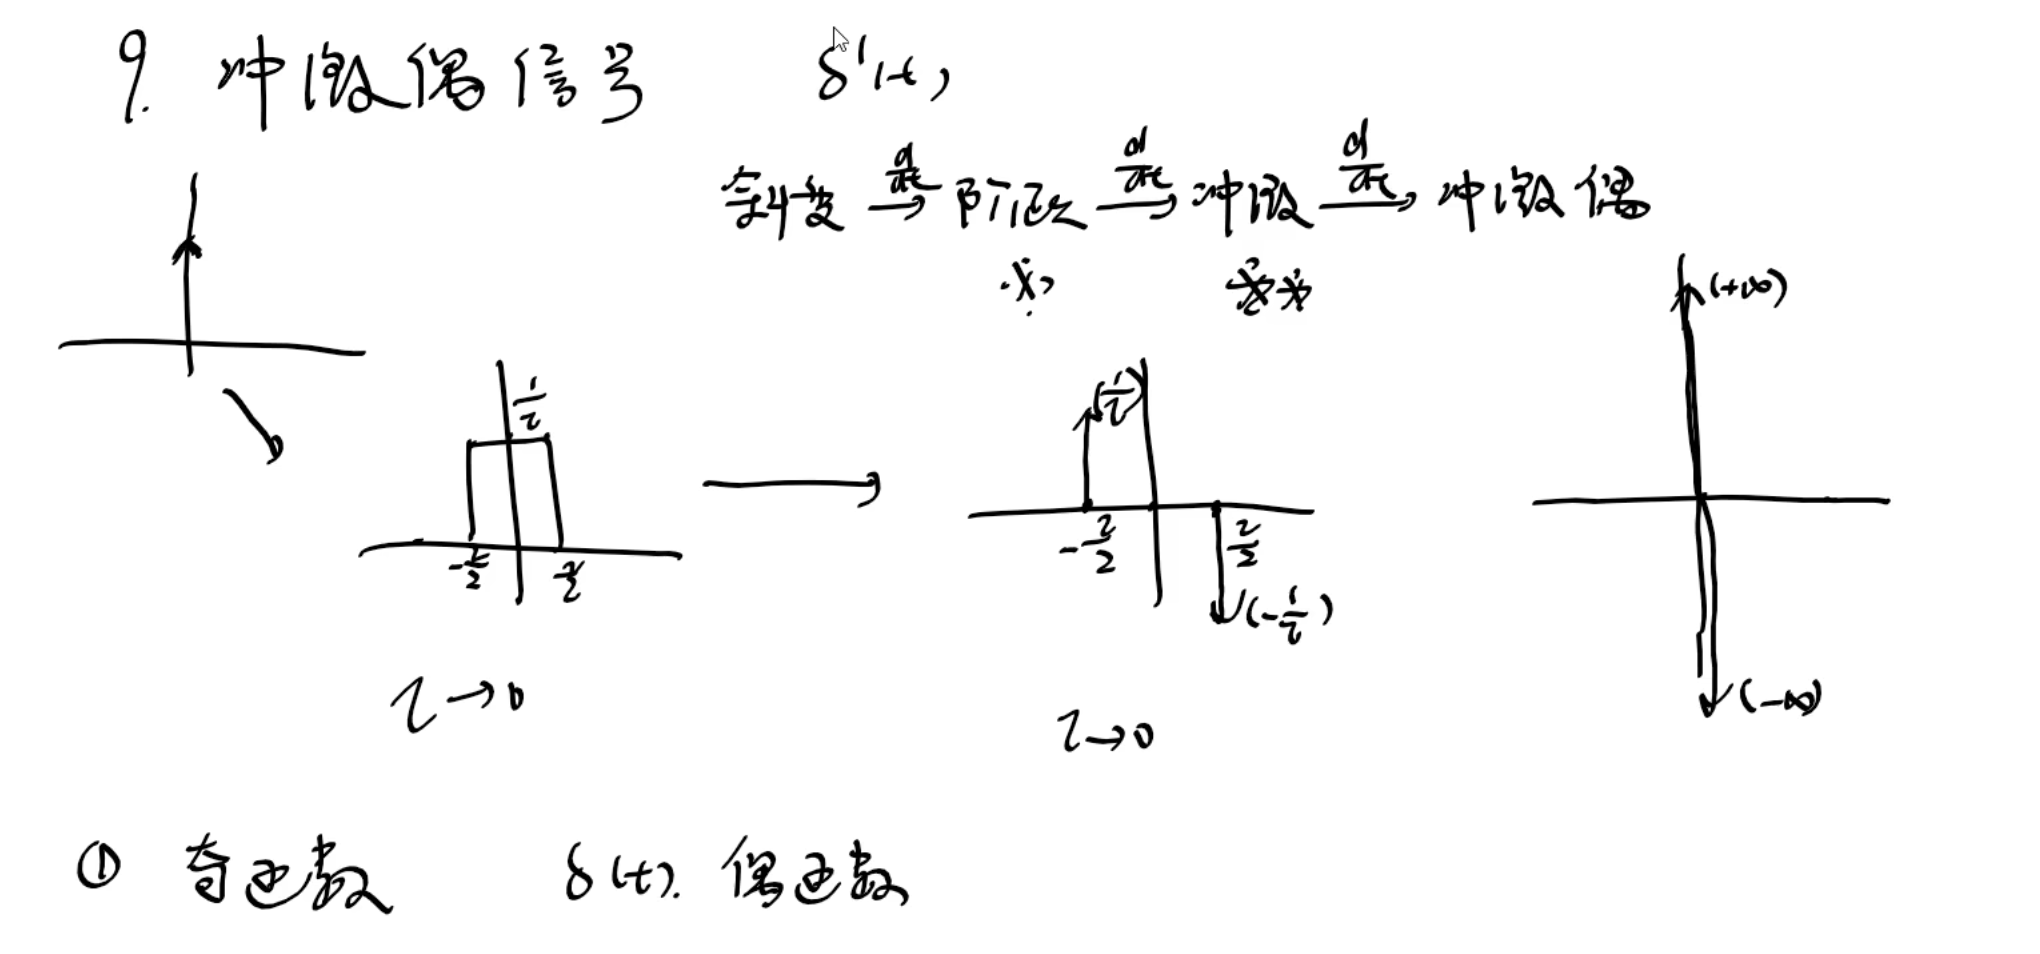 9. 冲激偶信号 δ'(t)
斜变 d/dt→ 阶跃 d/dt→ 冲激 d/dt→ 冲激偶
(+∞)
1/τ
(1/τ)
-τ/2 τ/2
-τ/2 τ/2
(-1/τ)
(-∞)
τ→0
τ→0
① 奇函数 δ(t). 偶函数